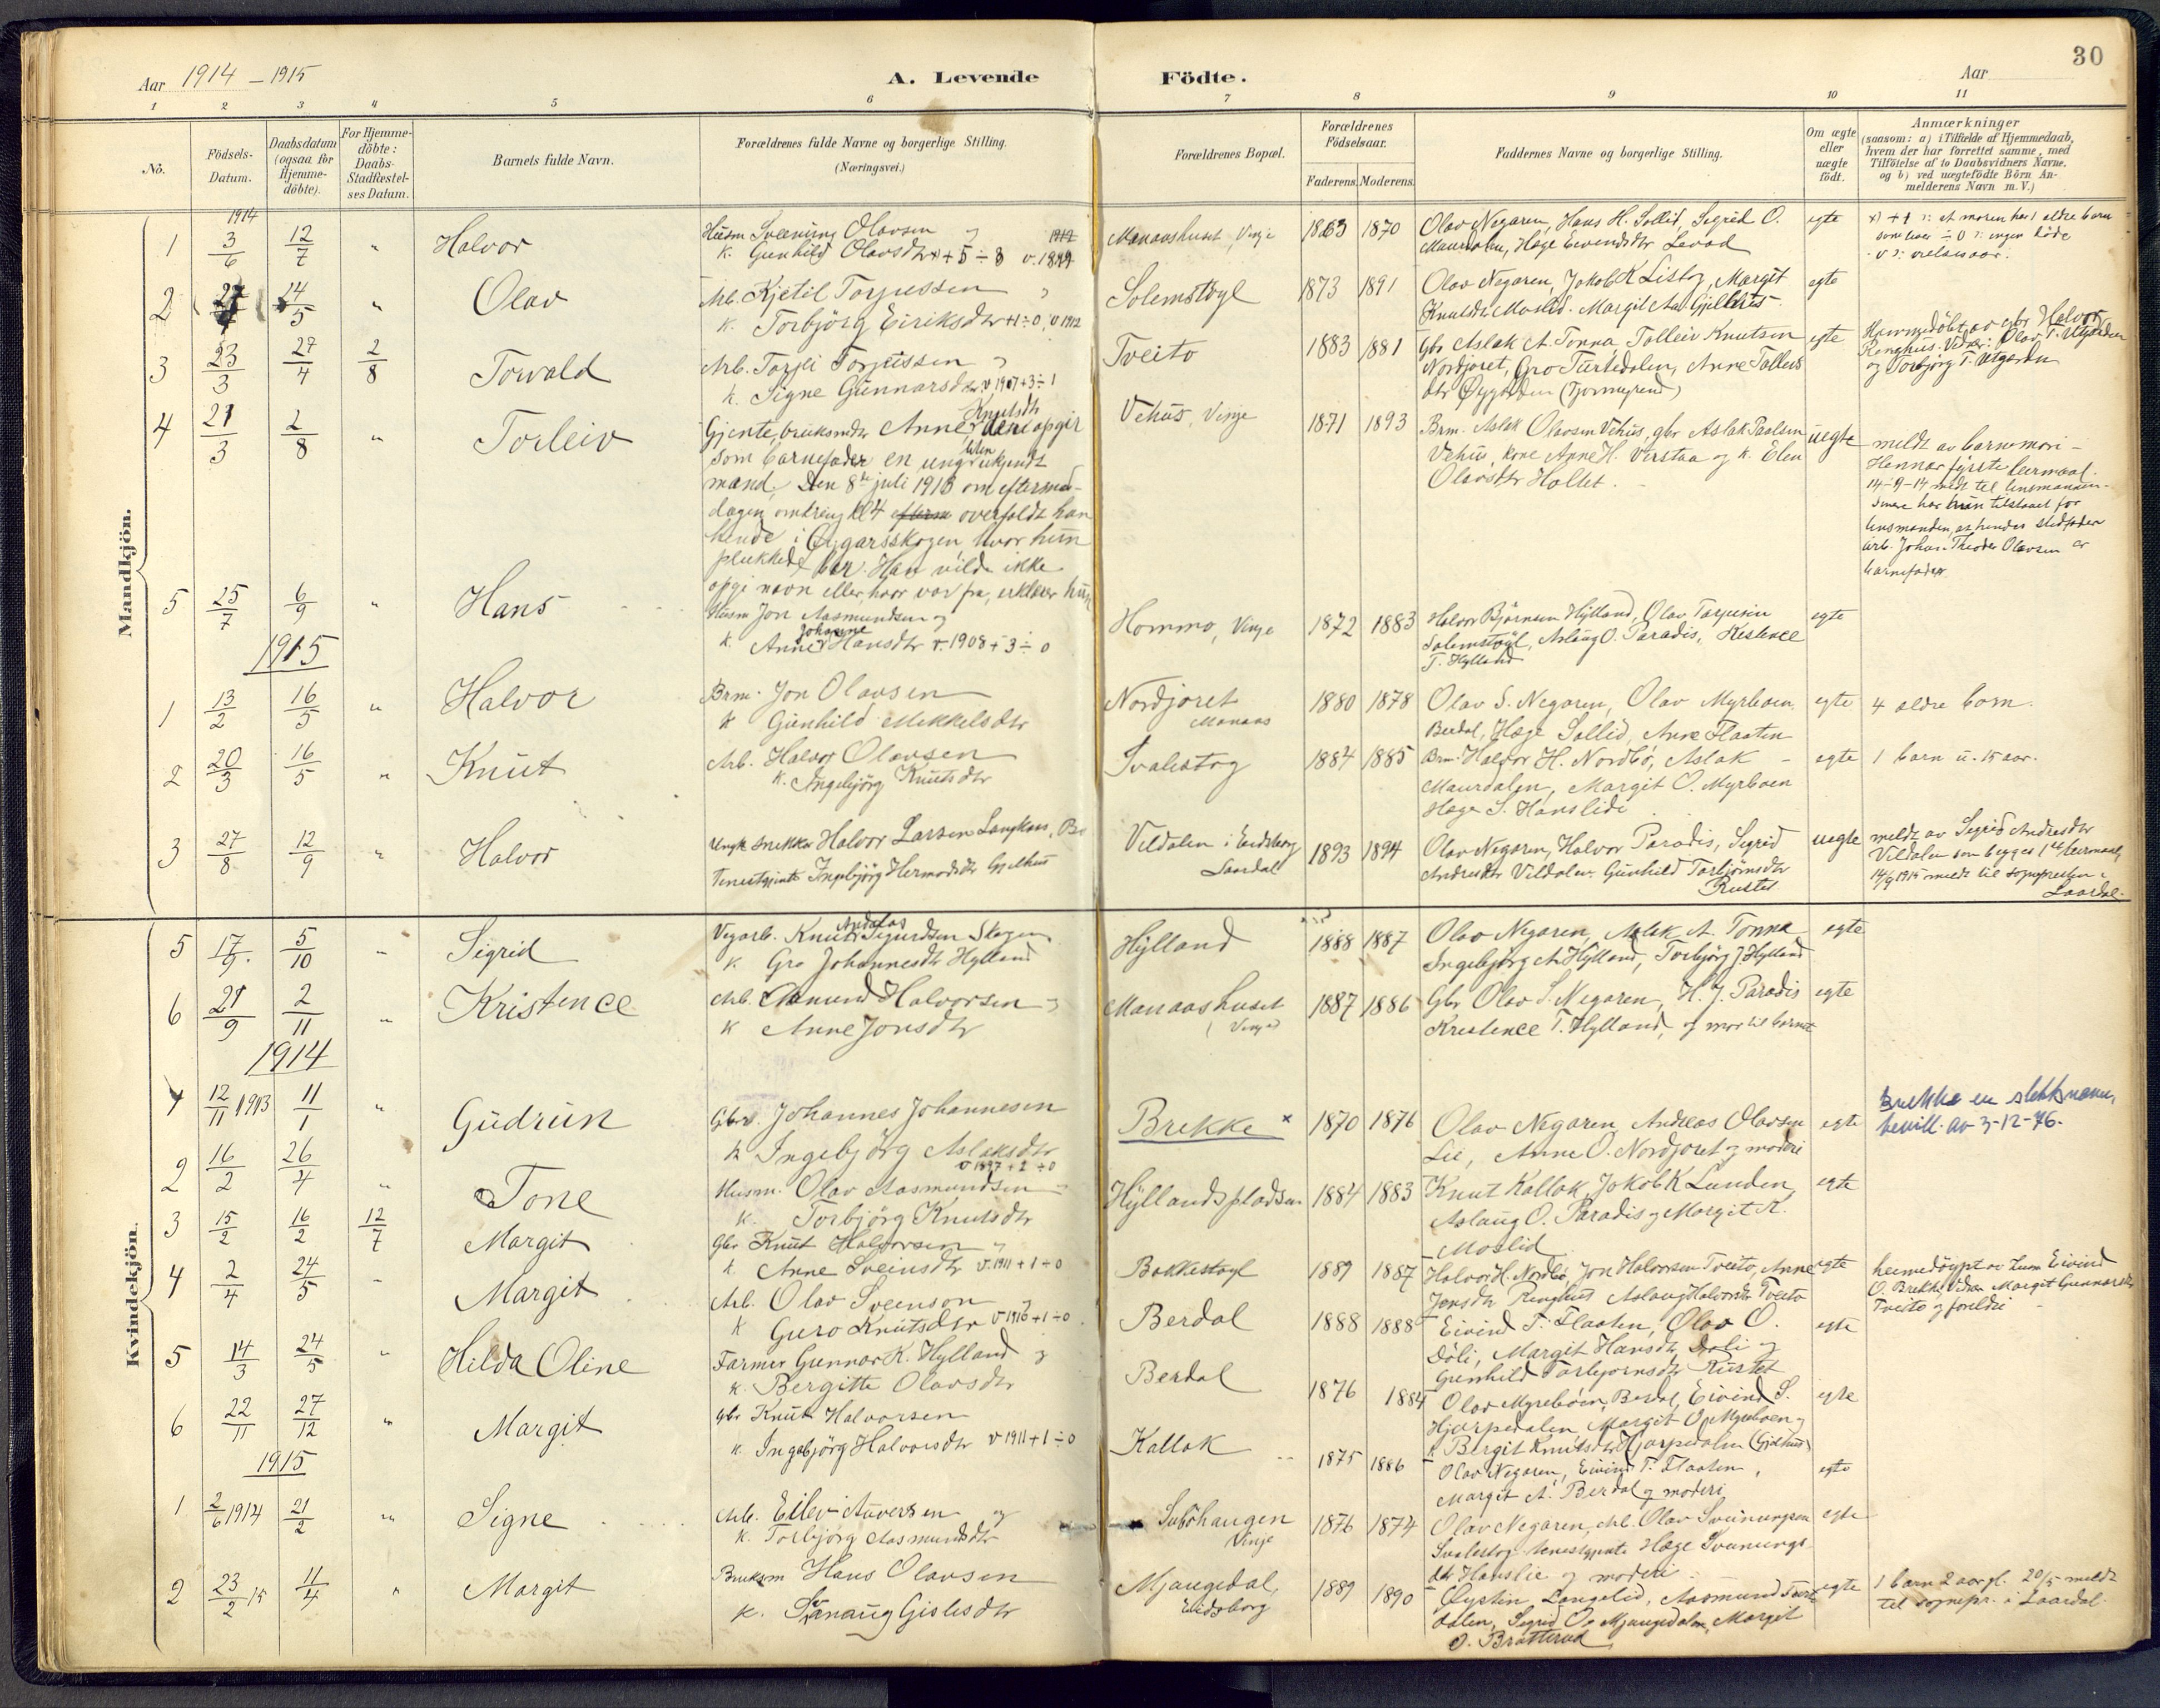 30
Aar 1914 - 1915
A. Levende Födte.
Aar
1 2 3 4 5 6 7 8 9 10 11
No.
Födsels-Datum.
Daabsdatum (ogsaa for Hjemme-döbte).
For Hjemme-döbte: Daabs-Stadfæstel-ses Datum.
Barnets fulde Navn.
Forældrenes fulde Navne og borgerlige Stilling.
(Næringsvei.)
Forældrenes Bopæl.
Forældrenes Födselsaar.
Faderens. Moderens.
Faddernes Navne og borgerlige Stilling.
Om ægte eller uægte født.
Anmærkninger
(saasom: a) i Tilfælde af Hjemmedaab,
hvem der har forrettet samme, med
Tilföielse af to Daabsvidners Navne.
og b) ved uægtefödte Börn An-
melderens Navn m. V.)
Mandkjön.
1914
1 3/6 12/7 " Halvor
Husm Sveinung Olavsen og
k. Gunhild Olavsdtr + 5 ÷ 8
Manaashuset, Vinje 1863 1870
Olav Negaren, Hans H. Sollid, Sigrid O.
Maurdalen, Hæge Eivendsdtr Levad
egte
2 14/5 " Olav
Arb. Kjetil Torjussen
k. Torbjörg Eiriksdtr +1÷0, v 1912
Solemstøyl 1873 1891
Olav Negaren, Jakob K Listog, Margit
Knutsdtr Moslid. Margit Aa Gjelhus
egte
3 23/3 27/4 2/8 Torvald
Arb. Torjei Torjussen
k. Signe Gunnarsdtr v 1907+3÷1
Tveito 1883 1881
Gbr Aslak A. Tonna, Tolleiv Knutsen
Nordjoret, Gro Turtedalen, Anne Tolleivs
egte
Hjemmedöbt av gbr Halvor
Ringhus. Vidner: Olav T. Utgarden
og Torbjörg T. Utgarden
4 21/3 2/8 " Torleiv
Gjente, bruksmdtr Anne Knutsdtr
som barnefader en ung liten ukjendt
mand. Den 8de juli 1913 om eftermid-
dagen omkring kl 4 overfaldt han
hende i Øygarsskogen hvor hun
plukkede bær. Han vilde ikke
opgi navn eller hvor var fra, erklærer hun
Vehus, Vinje 1871 1893
Brm. Aslak Olavsen Vehus, gbr Aslak Paalsen
Vehus, kone Anne H. Verstaa og k. Elen
Olavsdtr Holtet.
uegte
meldt av barnemori -
Hennar fyrste leirmaal.
14-9-14 meldt til lensmannen.
Senere har hun tilstaaet for
lensmanden at hendes stedfader
arb. Johan Theodor Olavsen er
barnefader
5 25/7 6/9 " Hans
Husm Jon Aasmundsen og
k. Anne Johanne Hansdtr v. 1908+3÷0
Hommo, Vinje 1872 1883
Halvor Bjørnsen Hylland, Olav Torjusen
Solemstøyl, Aslaug O. Paradis, Kristence
T. Hylland
egte
1915
1 13/2 16/5 " Halvor
Brm. Jon Olavsen
k Gunhild Mikkelsdtr
Nordjoret Manaas 1880 1878
Olav S. Negaren, Olav Myrboen
Berdal, Hæge Sollid, Anne Flaaten
egte 4 eldre born.
2 20/3 16/5 " Knut
Arb. Halvor Olavsen
k. Ingebjörg Knutsdtr
Svalestog 1884 1885
Brm. Halvor H. Nordbö, Aslak -
Maurdalen, Margit O. Myrboen
Hæge S. Hanslide
egte 1 barn u. 15 aar.
3 27/8 12/9 " Halvor
Ungk snekker Halvor Larsen Langkaas,
Tenestgjente Ingebjörg Hermodsdtr Gjelhus
Vildalen i Eidsborg Laardal 1893 1894
Olav Negaren, Halvor Paradis, Sigrid
Andresdtr Vildalen. Gunhild Torbjörnsdtr
Rustet
uegte
meldt av Sigrid Andresdtr
Vildalen som begges 1ste leirmaal,
14/9 1915 meldt til sognepresten i
Laardal.
5 17/9. 5/10 " Sigrid
Vegarb. Knut Andreas Sjurdsen Skogen
k. Gro Johannesdtr Hylland
Hylland 1888 1887
Olav Negaren, Aslak A. Tonna
Ingebjörg A Hylland, Torbjörg J Hylland
egte
6 21/9 2/11 " Kristence
Arb. Aamund Halvorsen
k Anne Jonsdtr
Manaashuset (Vinje) 1887 1886
Gbr Olav S. Negaren, H. J. Paradis
Kristence T. Hylland, og mor til barnet
egte
Kvindekjön.
1914
1 12/11 1913 11/1 " Gudrun
Gbr. Johannes Johannesen
k Ingebjörg Aslaksdtr
v 1897 + 2 ÷ 0
Brekke × 1870 1876
Olav Negaren, Andreas Olavsen
Lie, Anne O. Nordjoret og moderi
egte
Brekke er slektsnavn,
bevill. av 3-12-76.
2 16/2 26/4 " Tone
Husm. Olav Aasmundsen
k. Torbjörg Knutsdtr
Hyllandspladsen 1884 1883
Knut Kallak, Jakob K Lunden,
Aslaug O. Paradis og Margit K.
Moslid
egte
3 15/2 16/2 12/7 Margit
Gbr Knut Halvorsen
k. Anne Sveinsdtr v. 1911 +1÷0
Bakkestøyl 1889 1887
Halvor H. Nordbö, Jon Halvorsen Tveito, Anne
Jonsdtr Ringhus Aslaug Halvorsdtr Tveito
egte
heimedöypt av Eivind
O. Brekke, Vidner Margit Gunnarsdtr
Tveito og foreldri
4 2/4 24/5 " Margit
Arb. Olav Sveinson
k Guro Knutsdtr v 1910+1÷0
Berdal 1888 1888
Eivind T. Flaaten, Olav O.
Döli, Margit Hansdtr Döli og
Gunhild Torbjörnsdtr Rustet
egte
5 14/3 24/5 " Hilda Oline
Farmer Gunnar K. Hylland og
k. Bergitte Olavsdtr
Berdal 1876 1884
Olav Myreboen, Berdal, Eivind S.
Hjarpedalen, Margit O. Myrboen og
k Bergit Knutsdtr Hjarpedalen (Gjelhus)
egte
6 22/11 27/12 " Margit
Gbr Knut Halvorsen
k. Ingebjörg Halvorsdtr v 1911+1÷0
Kallak 1875 1886
Olav Negaren, Eivind T. Flaaten,
Margit A. Berdal og moderi
egte
1915
1 2/6 1914 21/2 " Signe
Arb. Eilev Auversen og
k. Torbjörg Aasmundsdtr
Vinje 1876 1874
Olav Negaren, Arb. Olav Sveinungsen
Svalestog tenestgjente Hæge Sveinungs-
dtr Hanslie og moderi
egte
2 23/2 15 11/4 " Margit
Bruksm Hans Olavsen
k. Gislesdtr
Mjaugedal, Eidsborg 1889 1890
Øystein Langelid, Aasmund Turte-
dalen, Sigrid O. Mjaugedalen, Margit
O. Bratterud
egte
1 barn 2 aar gl. 20/5 meldt
til sognepr. i Laardal.